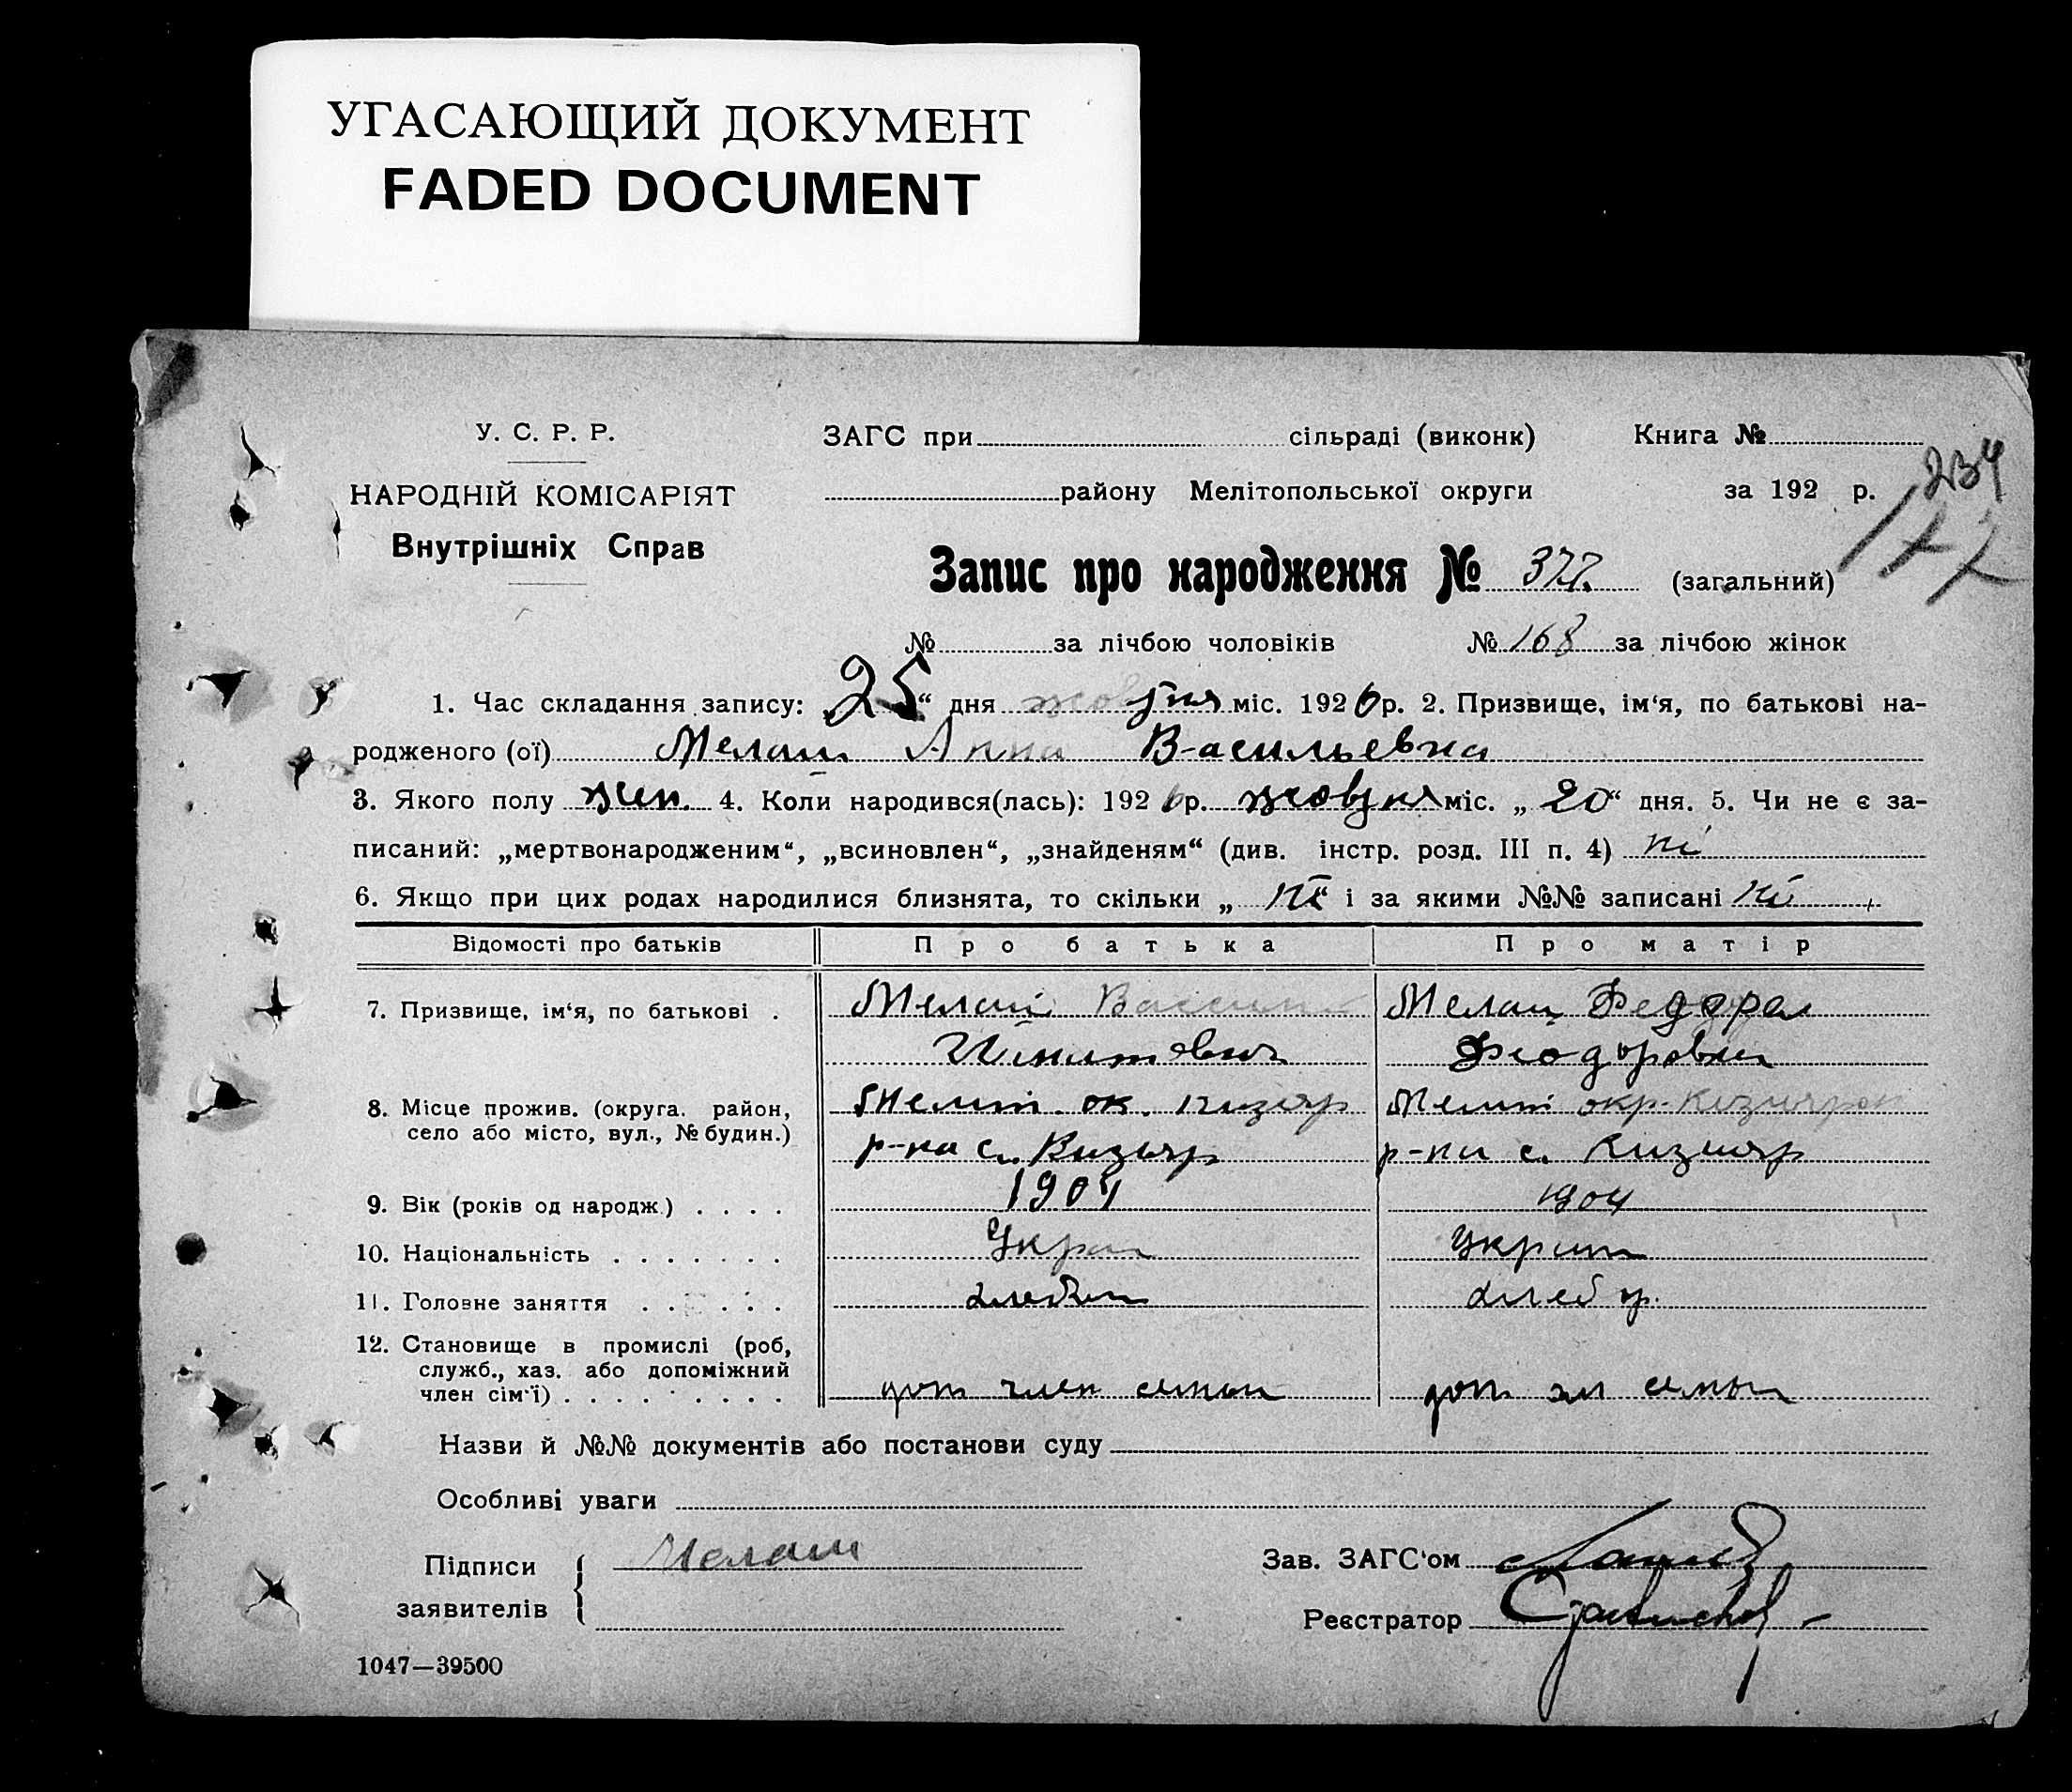 УГАСАЮЩИЙ ДОКУМЕНТ
FADED DOCUMENT
У. С. Р. Р.
НАРОДНІЙ КОМІСАРІЯТ
Внутрішніх Справ
ЗАГС при сільраді (виконк)
Книга №
району Мелітопольської округи
за 192 р.
234
177
Запис про народження № 377. (загальний)
№ за лічбою чоловіків № 168 за лічбою жінок
1. Час складання запису: 25“ дня жовтня міс. 1926 р. 2. Призвище, ім‘я, по батькові на-
родженого (ої) Мелаш Анна Васильевна
3. Якого полу жін. 4. Коли народився(лась): 1926 р. жовтня міс. „ 20“ дня. 5. Чи не є за-
писаний: „мертвонародженим“, „всиновлен“, „знайденям“ (див. інстр. розд. III п. 4) ні
6. Якщо при цих родах народилися близнята, то скільки „ ні“ і за якими №№ записані ні
Відомості про батьків Про батька Про матір
7. Призвище, ім‘я, по батькові . Мелаш Мелаш
Феодоровна
8. Місце прожив. (округа. район, Мелит. ок. Кизияр Мелит окр. Кизиярск
село або місто, вул., № будин.) р-на с. Кизияр р-на с. Кизияр
9. Вік (років од народж.) . . . . 1904 1904
10. Національність . . . . . . . Украи Украин
11. Головне заняття . . . . . . хлебоп хлеб
12. Становище в промислі (роб,
служб., хаз. або допоміжний
член сім‘ї) . . . . . . . . . доп член семьи доп чл семьи
Назви й №№ документів або постанови суду
Особливі уваги
Підписи Мелаш
заявителів
Зав. ЗАГС‘ом
Реєстратор
1047—39500